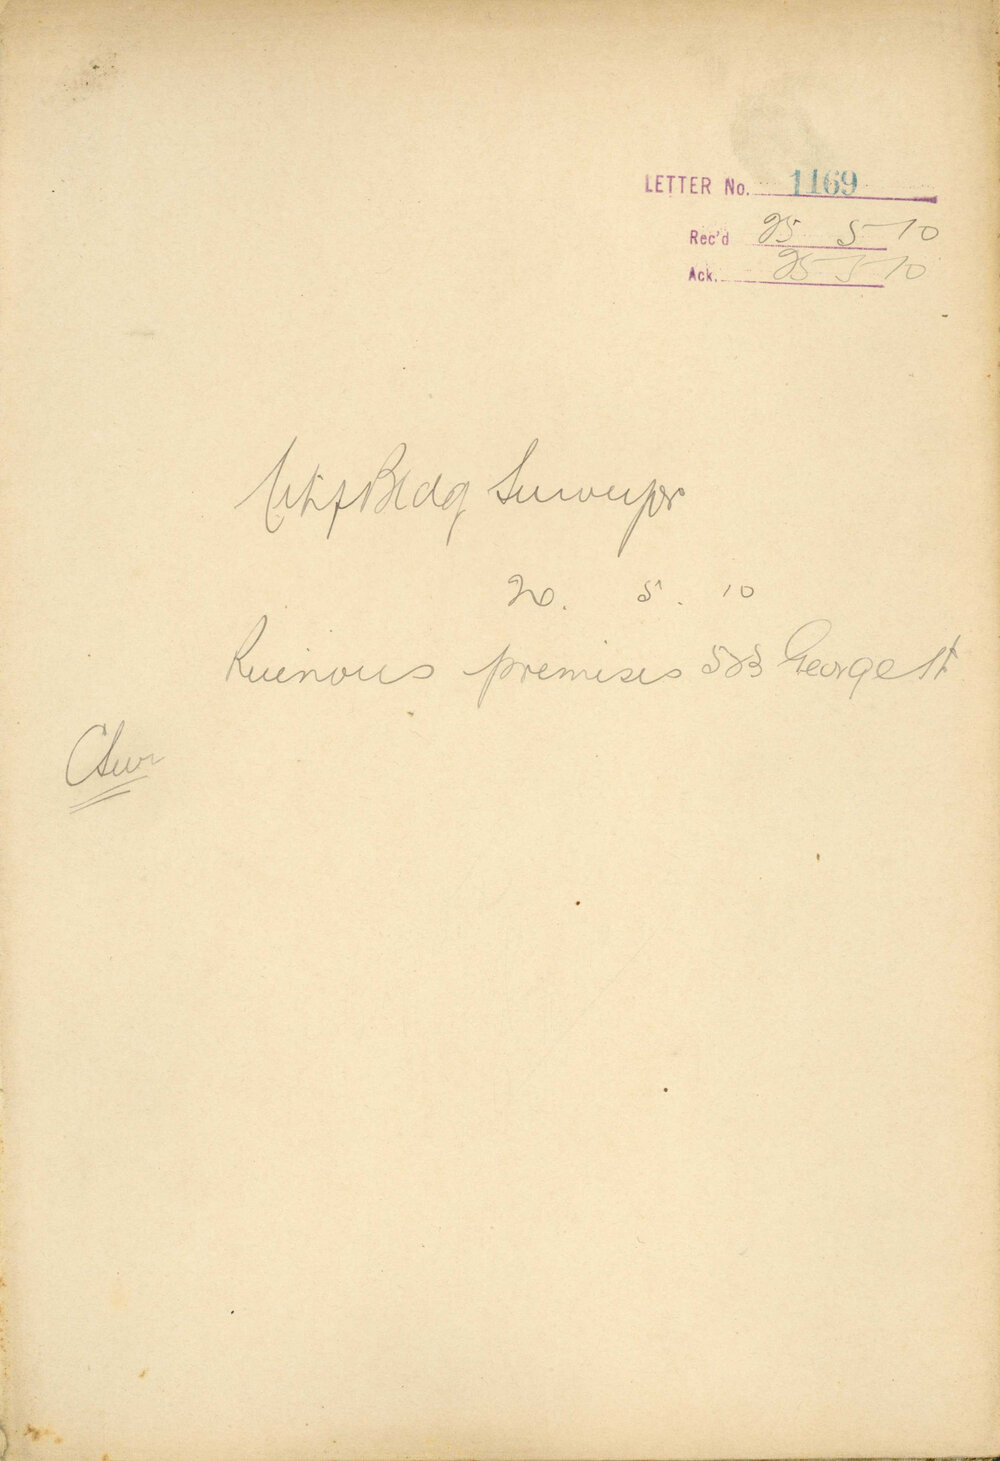 LETTER No. 1169
Rec'd 25 5 10
Ack. 25 5 10
City Bldg Surveyor
20. 5. 10
Ruinous premises George St
CSur